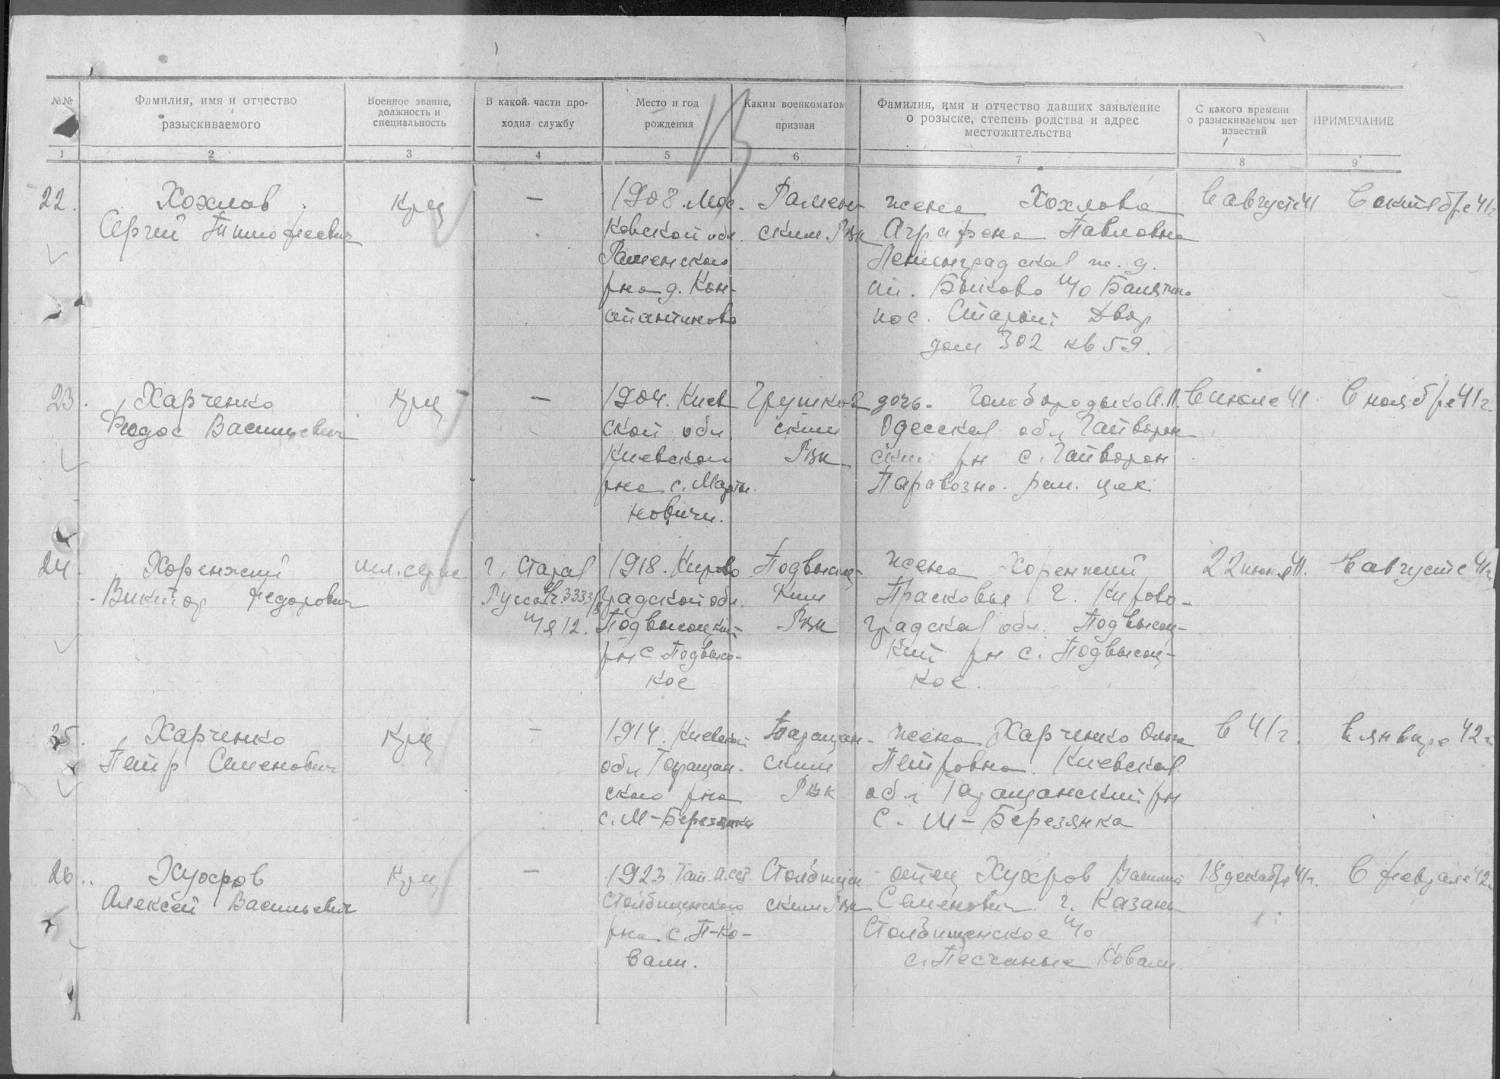 №№
Фамилия, имя и отчество
разыскиваемого
Военное звание,
должность и
специальность
В какой части про-
ходил службу
Место и год
рождения
Каким военкоматом
призван
Фамилия, имя и отчество давших заявление
о розыске, степень родства и адрес
местожительства
С какого времени
о разыскиваемом нет
известий
ПРИМЕЧАНИЕ
1 2 3 4 5 6 7 8 9
22.
Хохлов
Сергей Тимофеевич
Крц
—
1908. Мос-
ковской обл.
Раменского
рна д. Кон-
стантиново
Рамен-
ским Рвк
жена Хохлова
Аграфена Павловна
Ленинградская ж. д.
ст. Быково п/о
пос. Старый Двор
дом 302 кв 59.
В августе 41
В октябре 41г
23.
Харченко
Феодос Васильевич
Крц
—
1904. Киев
ской обл.
Киевского
рна с. Марти
новичи.
Грушков
ским
Рвк
дочь. Голобородько А.П.
Одесская обл Гайворон
ский рн с. Гайворон
Паравозно. рем. цех
В июле 41
В ноябре 41г.
24.
Хоренжий
Виктор Федорович
мл. серж
г. Старая
Русса в/ч. 3333/8
п/я 12.
1918. Кирово
градской обл.
Подвысоцкий
рн с. Подвысо-
кое
Подвысоц-
ким
Рвк
жена Хоренжий
Прасковья Г. Кирово-
градская обл. Подвысоц-
кий рн с. Подвысоц-
кое.
22 июня 41.
В августе 41г
25.
Харченко
Петр Семенович
Крц
—
1914. Киевской
обл Таращан-
ского рна
с. М-Березянка
Таращан-
ским
Рвк
жена Харченко Ольга
Петровна. Киевская
обл Таращанский рн
с. М-Березянка
в 41г.
В январе 42г
26.
Хухров
Алексей Васильевич
Крц
—
1923 Тат. АССР
Столбищенского
рна. с. П-Ко-
вали.
Столбищен-
ским Рвк
отец Хухров Василий
Семенович г. Казань
Столбищенское п/о
с. Песчаные Ковали
18 декабря 41г.
В феврале 42г